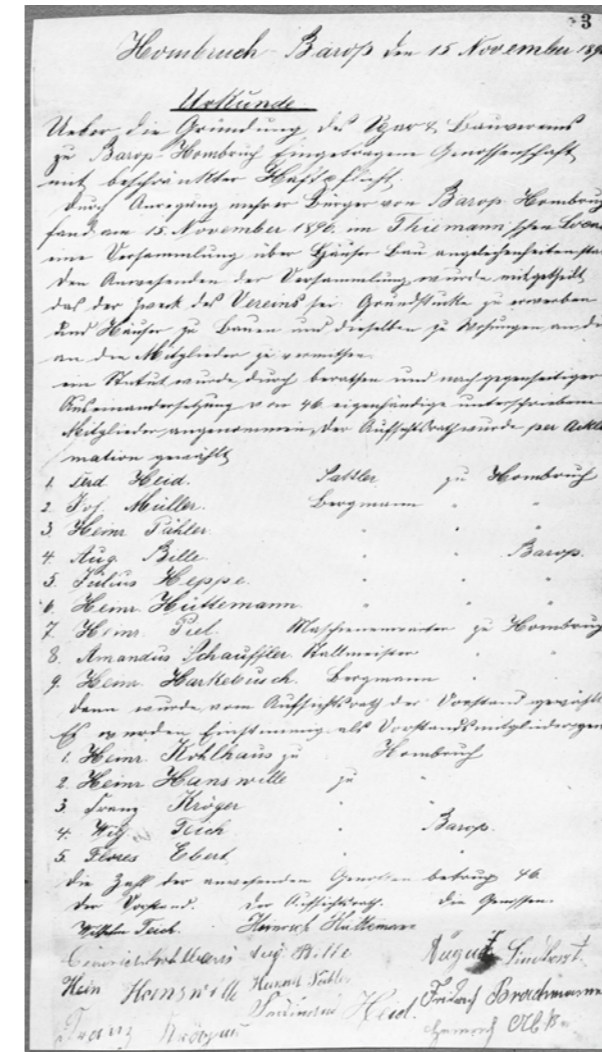 3
Hombruch-Barop den 15 November 189
Urkunde
Ueber die Gründung des Spar & Bauvereins
zu Barop-Hombruch Eingetragene Genossenschaft
mit beschränkter Haftpflicht.
Durch Anregung mehrer Bürger von Barop Hombruch
fand am 15. November 1896 im Thiemann'schen
eine Versammlung über Häuser Bau angelegenheiten
Den Anwesenden der Versammlung wurde mitgetheilt
das der Zweck des Vereins sei Grundstücke zu erwerben
und Häuser zu Bauen und dieselben zu Wohnungen
an die Mitglieder zu vermiethen.
ein Statut wurde durch berathen und nach gegenseitiger
Auseinandersetzung von 46 eigenhändige unterschriebene
Mitglieder angenommen, Der Aufsichtsrath wurde per Akkla
mation gewählt
1. Ferd Heid. Sattler zu Hombruch
2. Jos. Müller. Bergmann " "
3. Heinr Pähler. " " "
4. Aug. Bille. " " Barop.
5. Julius Heppe. " " "
6. Heinr. Hüttemann " " "
7. Heinr. Piel. Maschienenwärter zu Hombruch
8. Amandus Schauffler. Stallmeister " "
9. Heinr. Harkebusch. Bergmann " "
Dann wurde vom Aufsichtsrath der Vorstand gewählt
Es wurden Einstimmig als Vorstandsmitglieder
1. Heinr. Kohlhaus zu Hombruch
2. Heinr Hanswille zu "
3. Franz Kröger " "
4. Wilh. Teich " Barop.
5. Flores Ebert " "
Die Zahl der anwesenden Genossen betrug 46.
Der Vorstand. Der Aufsichtsrath. Die Genossen.
Wilhelm Teich. Heinrich Hüttemann
Aug. Bille August Lindhorst.
Hein Hanswille Friedrich Brachmann
Franz Ferdinand Heid. Heinrich